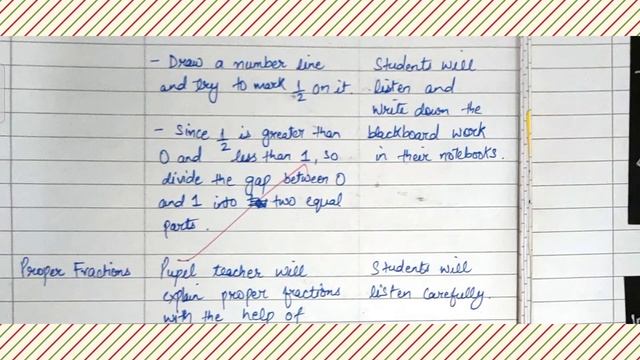 - Draw a number line
and try to mark 1/2 on it.
- Since 1/2 is greater than
0 and less than 1, so
divide the gap between 0
and 1 into two equal
parts.
Students will
listen and
write down the
blackboard work
in their notebooks.
Proper Fractions
Pupil teacher will
explain proper fractions
with the help of
Students will
listen carefully.